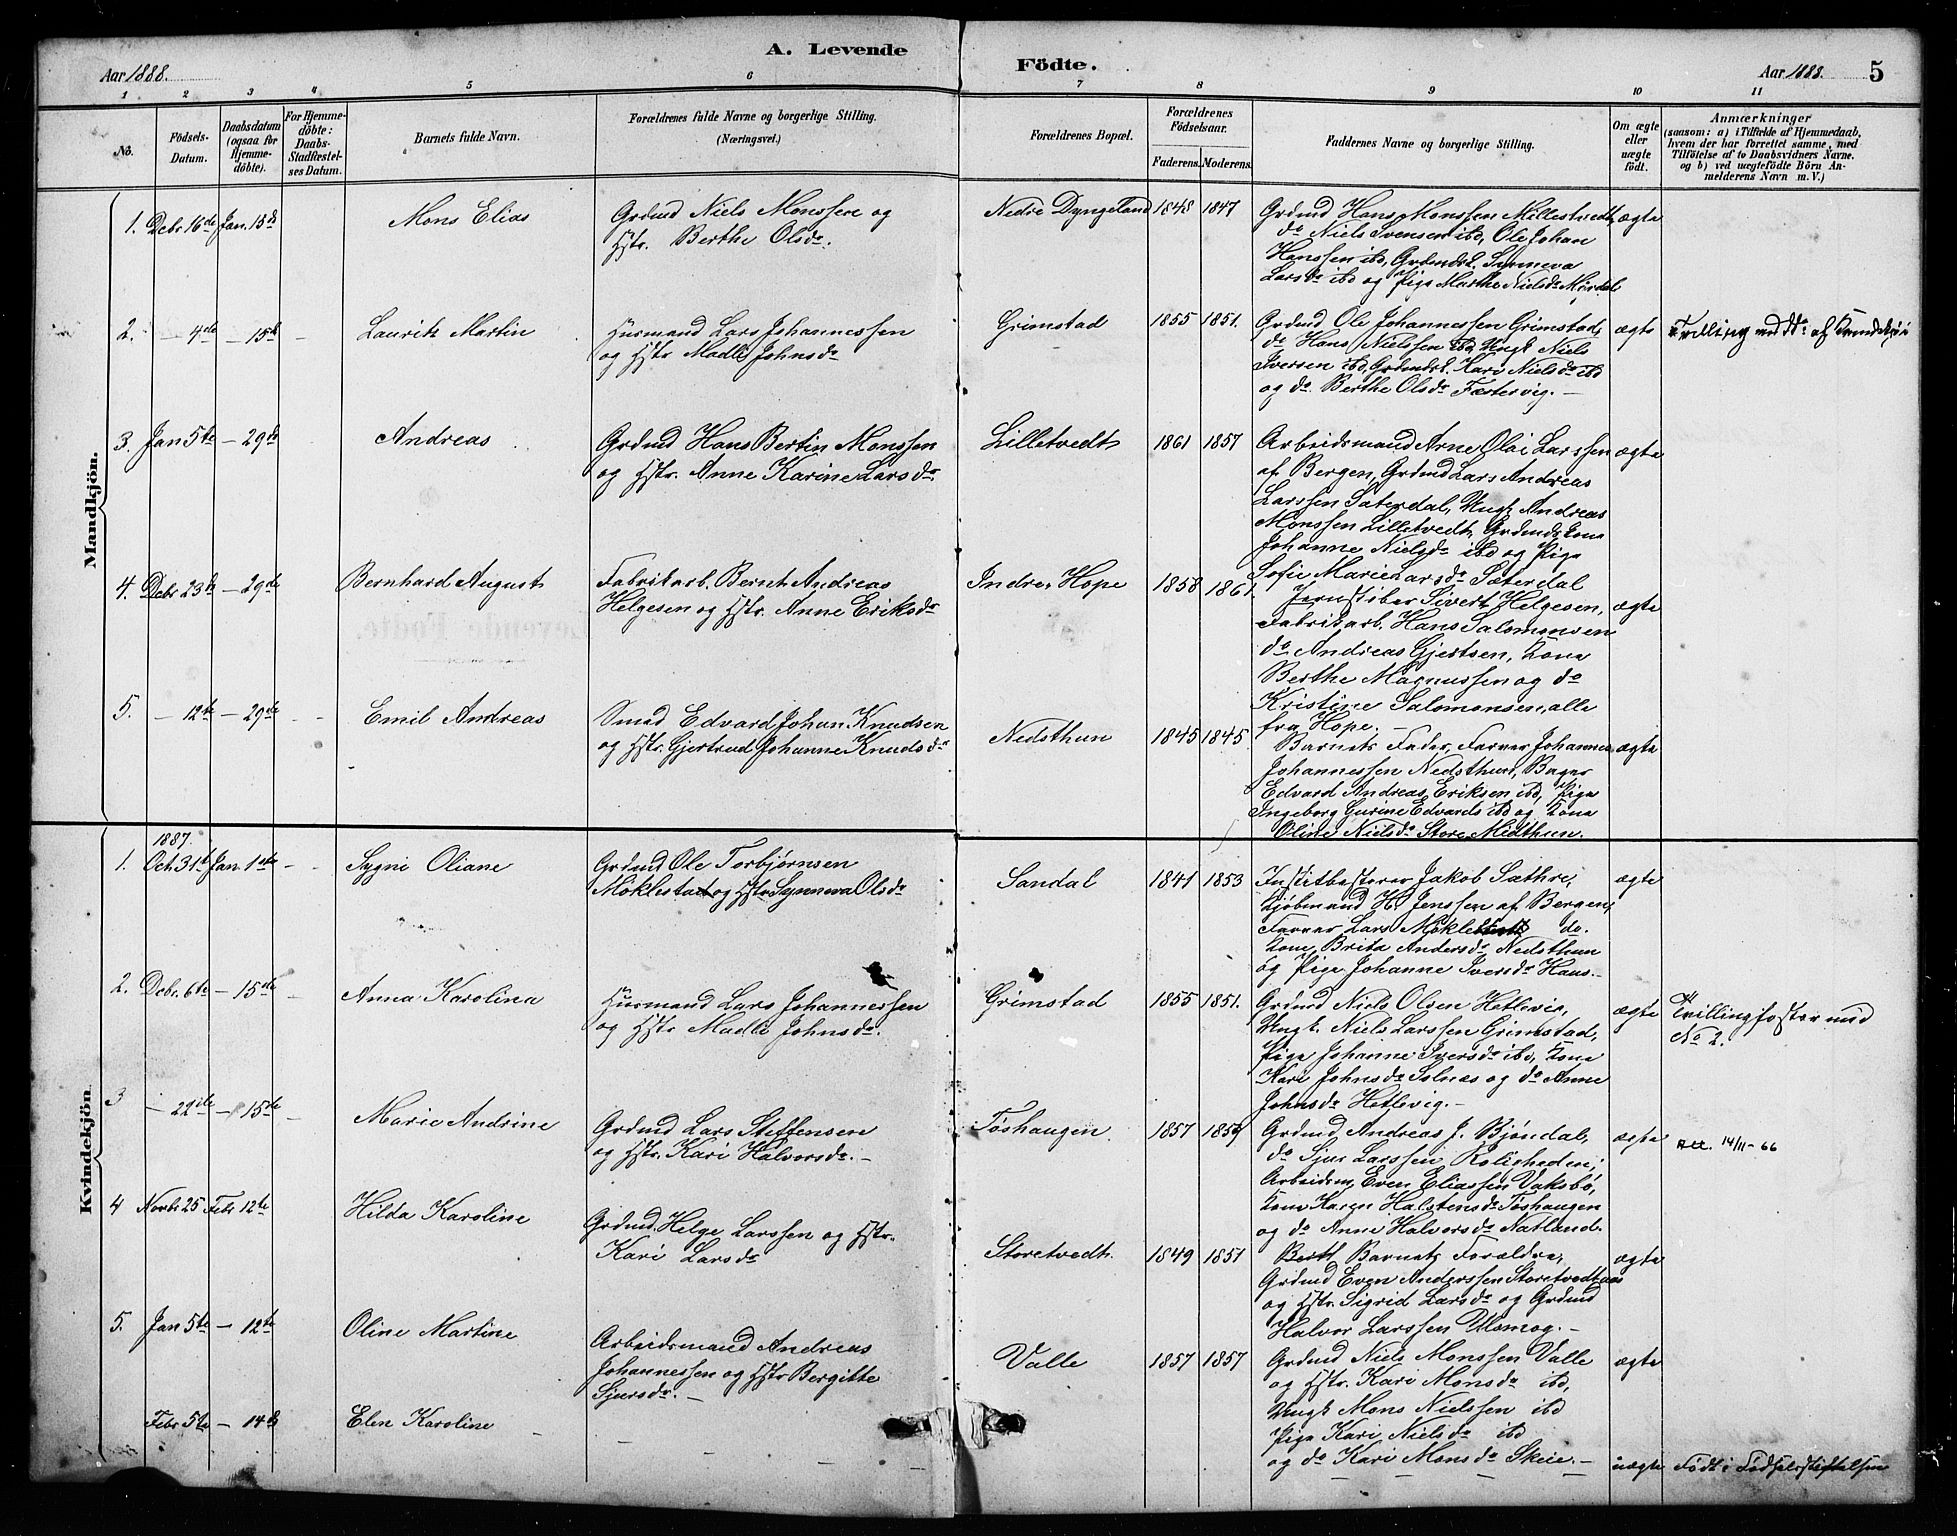 A. Levende Födte.
Aar 1888.
Aar 1888. 5
1 2 3 4 5 6 7 8 9 10 11
No.
Födsels-
Datum.
Daabsdatum
(ogsaa for
Hjemme-
döbte).
For Hjemme-
döbte:
Daabs-
Stadfæstel-
ses Datum.
Barnets fulde Navn.
Forældrenes fulde Navne og borgerlige Stilling.
(Næringsvei.)
Forældrenes Bopæl.
Forældrenes
Födselsaar.
Faderens. Moderens.
Faddernes Navne og borgerlige Stilling.
Om ægte
eller
uægte
födt.
Anmærkninger
(saasom: a) i Tilfælde af Hjemmedaab,
hvem der har forrettet samme, med
Tilföielse af to Daabsvidners Navne.
og b) ved uægtefödte Börn An-
melderens Navn m. V.)
Mandkjön.
1. Debr. 16de Jan. 15de Mons Elias
Grdmd Niels Monssen og
Hstr. Berthe Olsdr.
Nedre Dyngeland 1848 1847
Grdmd Hans Monssen Millestvedt,
do Niels Svensen ibd, Ole Johan
Hanssen ibd, Grdmdsk. Synneva
Larsdr ibd og Pige Marthe Nielsdr
ægte
2. — 4de — 15de Lauritz Martin
Husmand Lars Johannessen
og Hstr. Madli Johnsdr
Grimstad 1855 1851.
Grdmd Ole Johannessen Grimstad,
do Hans Nielssen ibd, Ungk. Niels
Iversen ibd, Grdmdsk. Kari Nielsdr ibd
og do. Berthe Olsdr Fastervig. —
ægte
3 Jan 5te — 29de Andreas
Grdmd Hans Bertin Monssen
og Hstr. Anne Karine Larsdr.
Lilletvedt 1861 1857
Arbeidsmand Arne Olai Larssen
af Bergen, Grdmd Lars Andreas
Larssen Sæterdal, Ungk. Andreas
Monssen Lilletvedt, Grdmds kone
Johanne Nielsdr ibd og Pige
Sofie Marie Larsdr Sæterdal
ægte
4. Debr 23de — 29de Bernhard August
Fabrikarb. Bernt Andreas
Helgesen og Hstr. Anne Eriksdr
Indre Hope 1858 1861.
Jernstøber Sivert Helgesen,
Fabrikarb. Hans Salomonsen
do. Andreas Gjertsen, Kone
Berthe Magnussen og do
Kristine Salomonsen, alle
fra Hope. —
ægte
5. — 12te — 29de Emil Andreas
Smed Edvard Johan Knudsen
og Hstr. Gjertrud Johanne Knudsdr
Nedsthun 1845 1845.
Barnets Fader, Farver Johannes
Johannessen Nedsthun, Bager
Edvard Andreas Eriksen ibd, Pige
Ingeborg Gurine Edvards ibd og Kone
Oline Nielsdr Store Midthun.
ægte
Kvindekjön
1887.
1. Oct. 31te Jan. 1ste — Sygni Oliane
Grdmd Ole Torbjørnsen
Møklestad og Hstr Synneva Olsdr
Sandal 1841 1853
Institbestyrer Jakob Sæthre,
Kjøbmand H. Jenssen af Bergen,
Farver Lars Møkle do.
Kone Brita Andersdr Nedsthun
og Pige Johanne Iversdr Haus. —
ægte
2. Debr. 6te — 15de — Anna Karolina
Husmand Lars Johannessen
og Hstr Madli Johnsdr.
Grimstad 1855 1851.
Grdmd Niels Olsen Hetlevig,
Ungk. Niels Larssen Grimstad,
Pige Johanne Iversdr ibd, Kone
Kari Johnsdr Solnæs og do Anne
Johnsdr Hetlevig. —
ægte
Tvillingfoster med
No 2.
3 — 22de — 15de — Marie Andrine
Grdmd Lars Steffensen
og Hstr. Kari Halvorsdr. —
Tøshaugen 1857 1859
Grdmd Andreas J. Bjøndal,
do Sjur Larssen Roligheden,
Arbeidsm. Even Eliassen Vaksbø,
Kone Karen Halstensdr Tøshaugen
og do Anne Halvorsdr Natland.
ægte
Att. 14/11-66
4 Novbr 25 Febr 12te Hilda Karoline
Grdmd. Helge Larssen og Hstr.
Kari Larsdr
Storetvedt. 1849 1851
Barnets Forældre,
Grdmd Even Anderssen Storetvedt
og Hstr. Sigrid Larsdr og Grdmd
Halvor Larssen Ulsmog. —
ægte
5. Jan 5te — 12te Oline Martine
Arbeidsmand Andreas
Johannessen og Hstr Bergitte
Sjursdr. —
Valle 1857 1857
Grdmd Niels Monssen Valle
og Hstr. Kari Monsdr ibd,
Ungk. Mons Nielssen ibd
Pige Kari Nielsdr ibd
og do Kari Monsdr Skeie. —
ægte
Febr 5te — 14de Elen Karoline — — — — — —
uægte Født i Fødselsstiftelsen